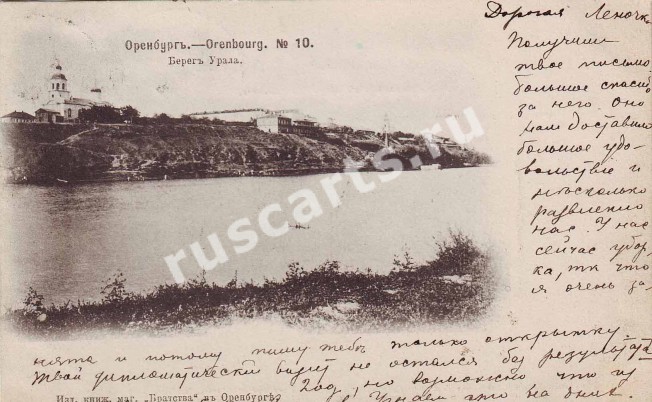 Оренбургъ.—Orenbourg. № 10.
Берегъ Урала.
Дорогая Леночка
Получили
твое письмо
большое спасибо
за него. Оно
нам доставило
большое удо-
вольствие и
нѣсколько
развлекло
нас. У нас
сейчас убор-
ка, тк что
я очень за-
нята и потому пишу тебѣ только открытку
Твой дипломатический визит не остался без результата
год, но возможно что и
Узнаем это на днях.
Изд. книж. маг. „Братства" въ Оренбургѣ
ruscarts.ru